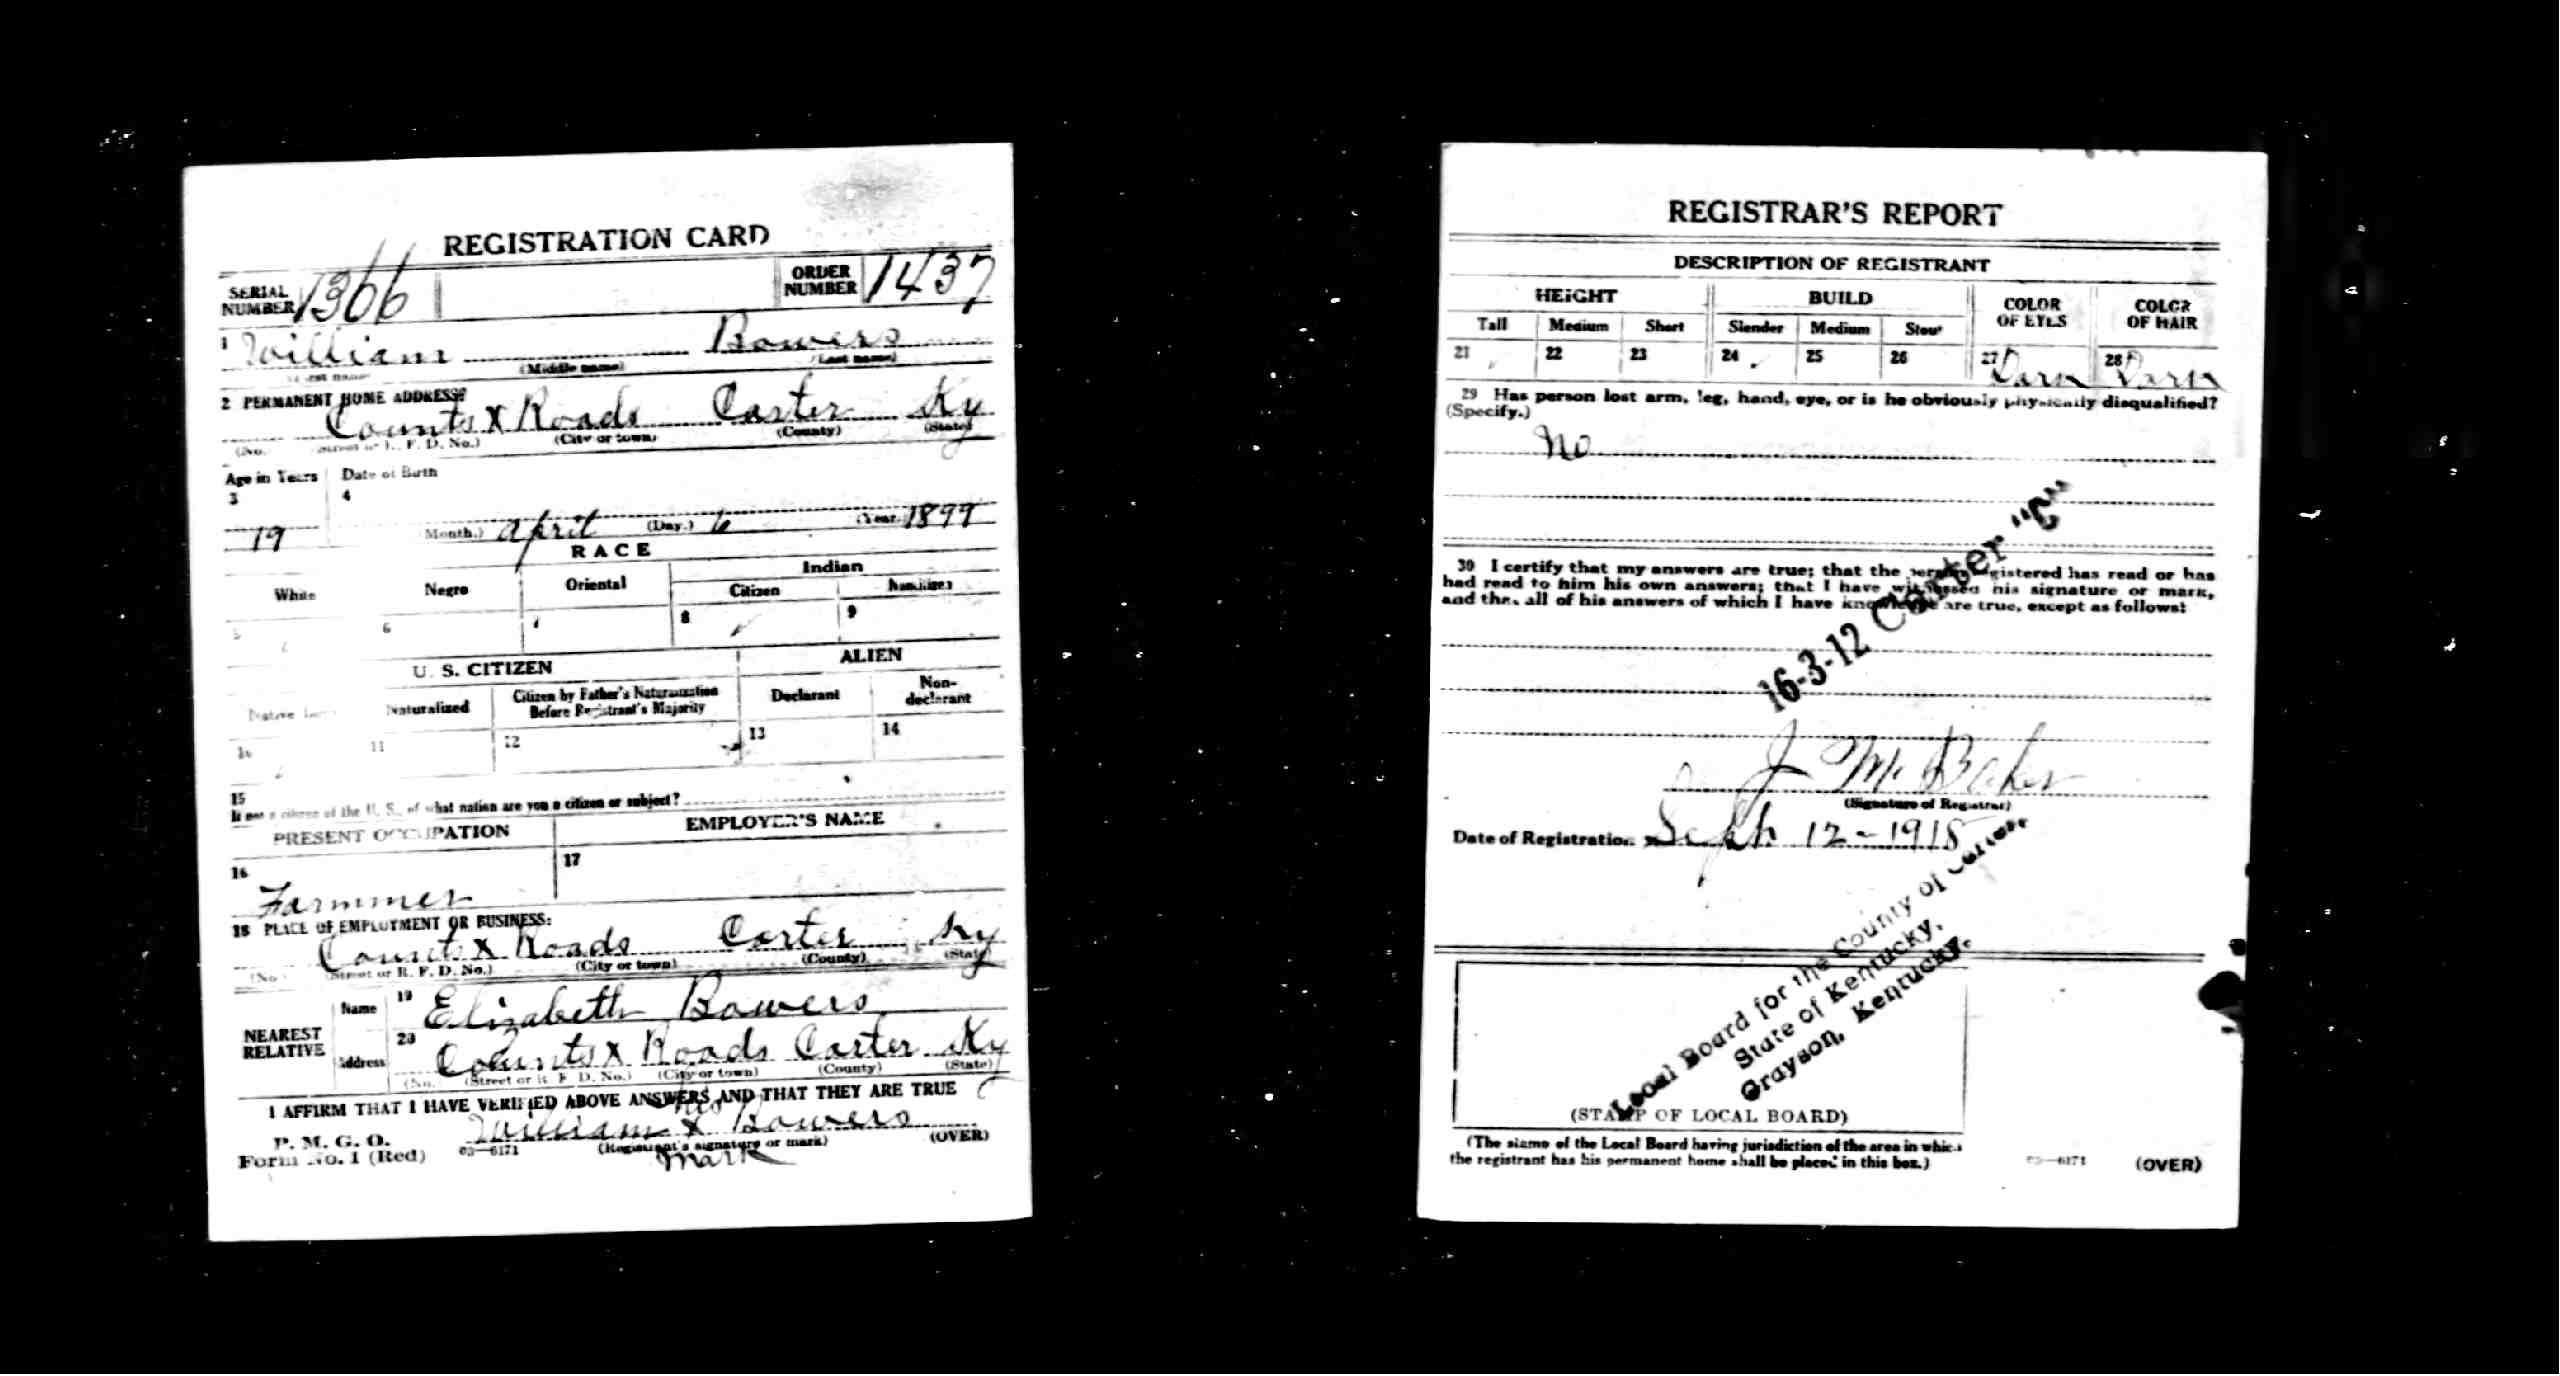 REGISTRATION CARD
SERIAL NUMBER 1366 ORDER NUMBER 1437
1 William Bowers
(Middle name) (Last name)
2 PERMANENT HOME ADDRESS:
Counts X Roads Carter Ky
(No. (Street or R. F. D. No.) (City or town) (County) (State)
Age in Years Date of Birth
3 4
19 Month.) April (Day.) 6 (Year. 1899
RACE
White Negro Oriental Indian
Citizen Noncitizen
5 6 7 8 9
U. S. CITIZEN ALIEN
Native Naturalized Citizen by Father's Naturalization Before Registrant's Majority Declarant Non-declarant
10 11 12 13 14
15
If not a citizen of the U. S., of what nation are you a citizen or subject?
PRESENT OCCUPATION EMPLOYER'S NAME
16 17
Farmmer
18 PLACE OF EMPLOYMENT OR BUSINESS:
Counts X Roads Carter Ky
(No. (Street or R. F. D. No.) (City or town) (County) (State
NEAREST RELATIVE Name 19 Elizabeth Bowers
Address 20 Counts X Roads Carter Ky
(No. (Street or R. F. D. No.) (City or town) (County) (State)
I AFFIRM THAT I HAVE VERIFIED ABOVE ANSWERS AND THAT THEY ARE TRUE
his
William X Bowers
P. M. G. O.
Form No. 1 (Red) 03—6171 (Registrant's signature or mark) (OVER)
mark
REGISTRAR'S REPORT
DESCRIPTION OF REGISTRANT
HEIGHT BUILD COLOR OF EYES COLOR OF HAIR
Tall Medium Short Slender Medium Stout
21 22 23 24 25 26 27 Dark 28 Dark
29 Has person lost arm, leg, hand, eye, or is he obviously physically disqualified?
(Specify.)
No
30 I certify that my answers are true; that the person registered has read or has
had read to him his own answers; that I have witnessed his signature or mark,
and that all of his answers of which I have knowledge are true, except as follows:
16-3-12 Carter "C"
J M. Baker
(Signature of Registrar)
Date of Registration Seph 12-1918
Local Board for the County of Carter
State of Kentucky,
Grayson, Kentucky.
(STAMP OF LOCAL BOARD)
(The stamp of the Local Board having jurisdiction of the area in which
the registrant has his permanent home shall be placed in this box.)
03—6171 (OVER)